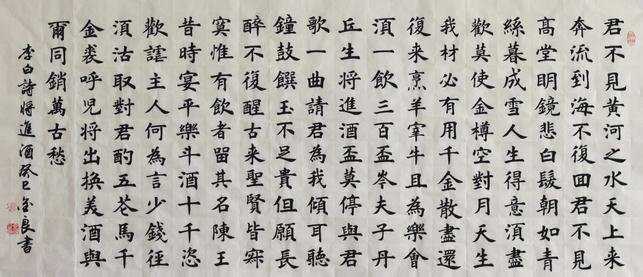 君不見黃河之水天上来
奔流到海不復回君不見
高堂明鏡悲白髮朝如青
絲暮成雪人生得意湏盡
歡莫使金樽空對月天生
我材必有用千金散盡還
復来烹羊宰牛且為樂會
湏一飲三百盃岑夫子丹
丘生將進酒盃莫停與君
歌一曲請君為我傾耳聽
鐘鼓饌玉不足貴但願長
醉不復醒古来聖賢皆寂
寞惟有飲者留其名陳王
昔時宴平樂斗酒十千恣
歡謔主人何為言少錢徑
湏沽取對君酌五花馬千
金裘呼児将出換美酒與
爾同銷萬古愁
李白詩將進酒癸巳良書